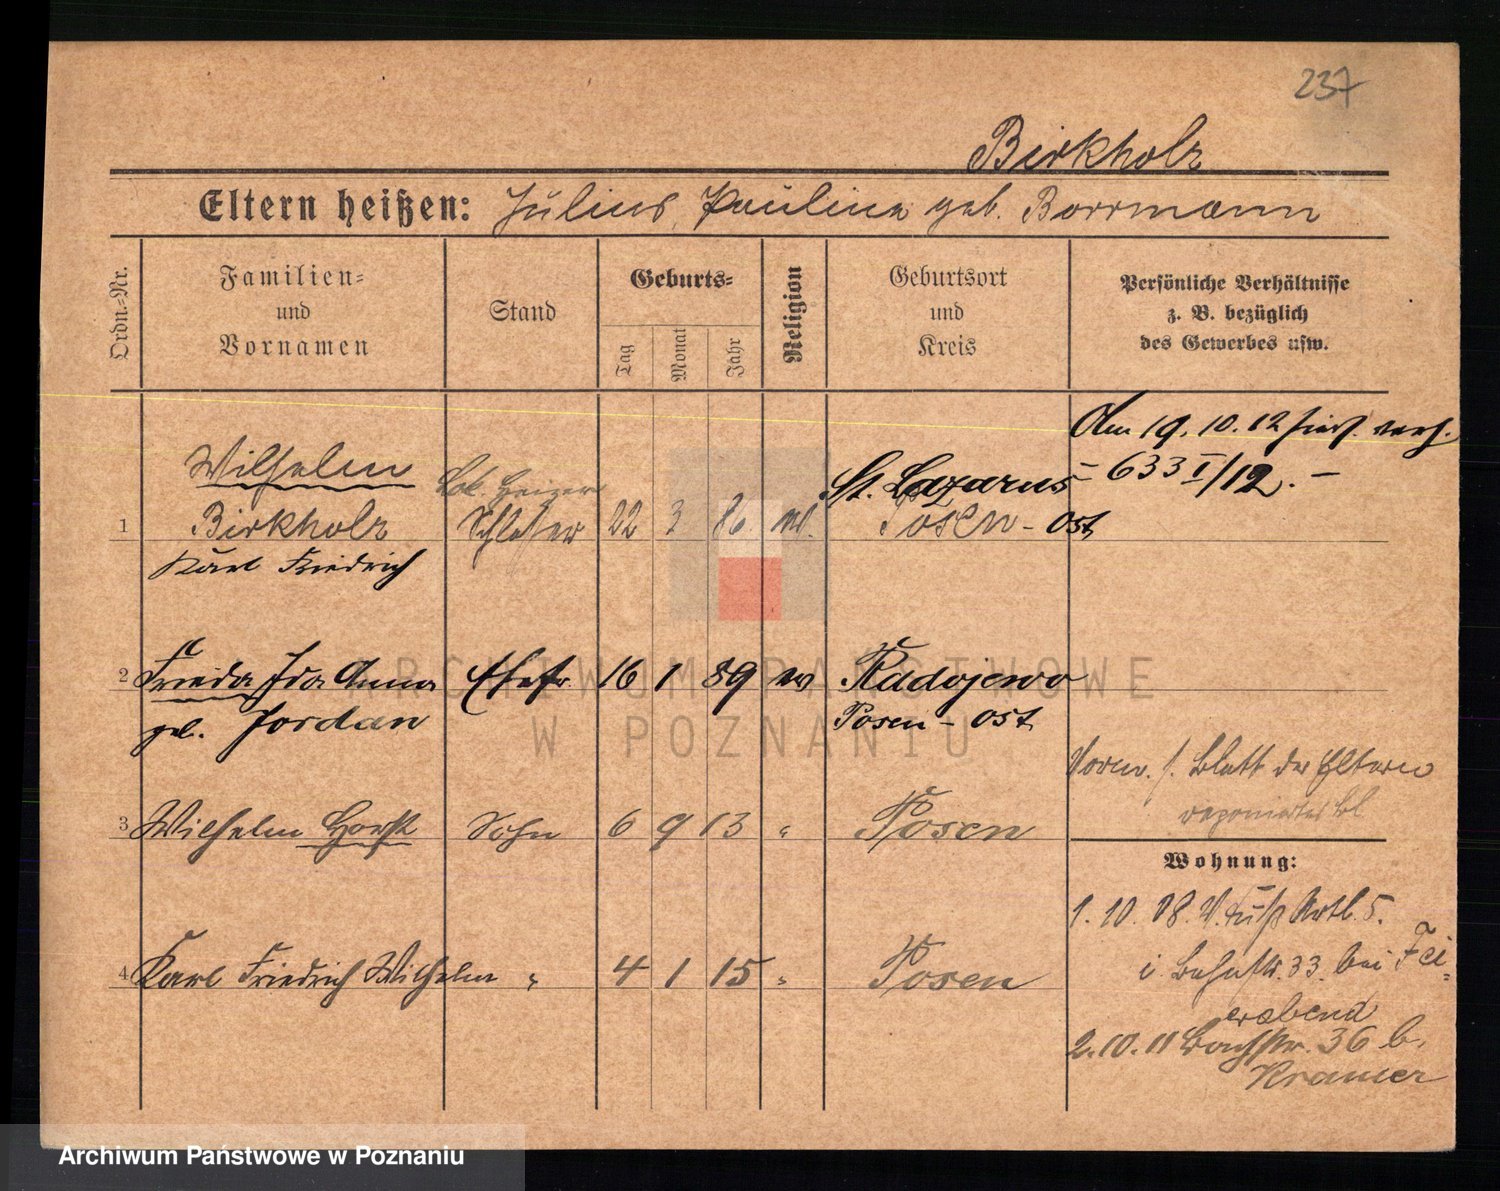 237
Birkholz
Eltern heißen: Julius, Pauline geb. Borrmann
Ordn.-Nr.
Familien-
und
Vornamen
Stand
Geburts-
Tag
Monat
Jahr
Religion
Geburtsort
und
Kreis
Persönliche Verhältnisse
z. B. bezüglich
des Gewerbes usw.
Am 19. 10. 12 hies. verh.
633 I/12. –
Wilhelm
Lok. Heizer
St. Lazarus
1 Birkholz Schlosser 22 3 86 Posen - Ost
Karl Friedrich
2 Frieda Ida Anna Ehefr. 16 1 89 Radojewo
geb. Jordan Posen - Ost
Vorm. s. Blatt der Eltern
3 Wilhelm Horst Sohn 6 9 13 " Posen
Wohnung:
1. 10. 08. V. Artl. 5.
4 Karl Friedrich Wilhelm " 4 1 15 " Posen
33. bei Fei-
erabend
2. 10. 11 36 b.
Kramer
ARCHIWUM PAŃSTWOWE
W POZNANIU
Archiwum Państwowe w Poznaniu